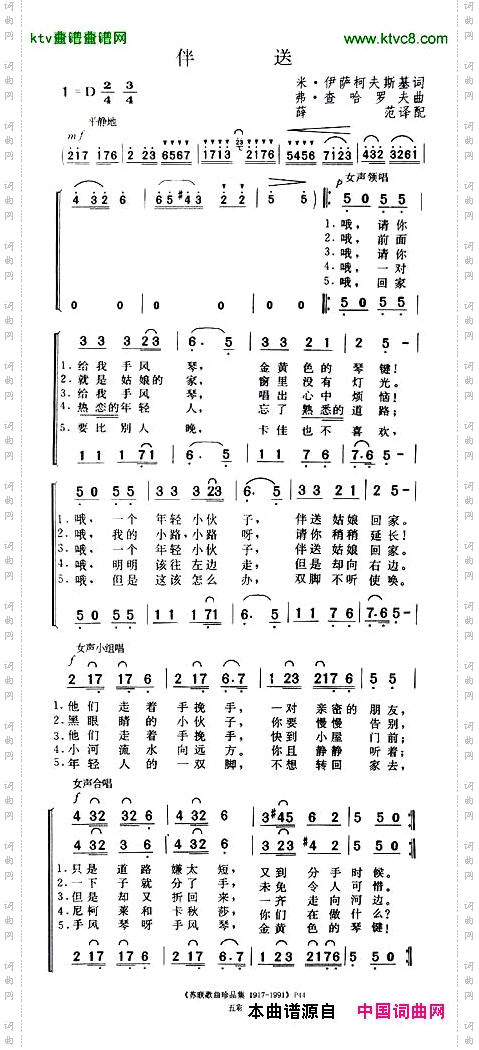 ktv曲谱曲谱网
www.ktvc8.com
伴 送
1=D 2/4 3/4
米·伊萨柯夫斯基词
弗·查哈罗夫曲
薛 范译配
平静地
mf
女声领唱
p
5 0 5 5
1.哦，请你
2.哦，前面
3.哦，请你
4.哦，一对
5.哦，回家
0 0 0 0 0
5 0 5 5
3 3 3 23 6· 5 3 3 21 2 5 -
1.给我手风琴，金黄色的琴键！
2.就是姑娘的家，窗里没有灯光。
3.给我手风琴，唱出心中烦恼！
4.热恋的年轻人，忘了熟悉的道路；
5.要比别人晚，卡佳也不喜欢，
1 1 1 71 6· 5 1 1 7 6 7·6 5 -
5 0 5 5 3 3 3 23 6· 5 3 3 21 2 5 -
1.哦，一个年轻小伙子，伴送姑娘回家。
2.哦，我的小路，小路呀，请你稍稍延长！
3.哦，一个年轻小伙子，伴送姑娘回家。
4.哦，明明该往左边走，但是却向右边。
5.哦，但是这该怎么办，双脚不听使唤。
5 0 5 5 1 1 1 71 6· 5 1 1 7 6 7·6 5 -
女声小组唱
f
2 17 17 6 2 17 6·7 1 23 2176 5 50
1.他们走着手挽手，一对亲密的朋友，
2.黑眼睛的小伙子，你要慢慢告别，
3.他们走着手挽手，快到小屋门前；
4.小河流水向远方。你且静静听着；
5.年轻人的一双脚，不想转回家去，
女声合唱
f
4 32 32 6 4 32 6 3#45 6 2 5 50
1.只是道路嫌太短，又到分手时候。
2.一下子就分了手，未免令人可惜。
3.但是却又折回来，一齐走向河边。
4.尼柯莱和卡秋莎，你们在做什么？
5.手风琴呀手风琴，金黄色的琴键！
2 17 17 6 2 17 6·7 1 23 2176 5 50
《苏联歌曲珍品集 1917-1991》P44
五彩
本曲谱源自 中国词曲网
词曲网